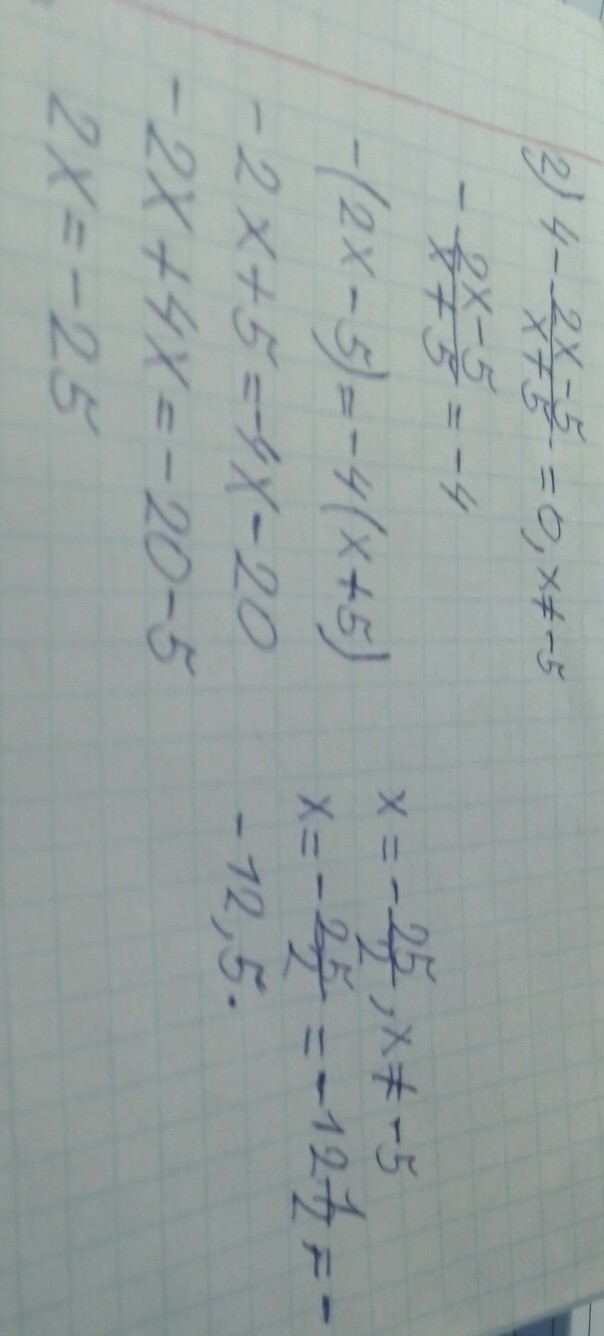 2) 4 - (2x-5)/(x+5) = 0, x ≠ -5
- (2x-5)/(x+5) = -4
-(2x-5) = -4(x+5)
-2x+5 = -4x-20
-2x+4x = -20-5
2x = -25
x = - 25/2, x ≠ -5
x = - 25/2 = -12 1/2 = -
-12,5.